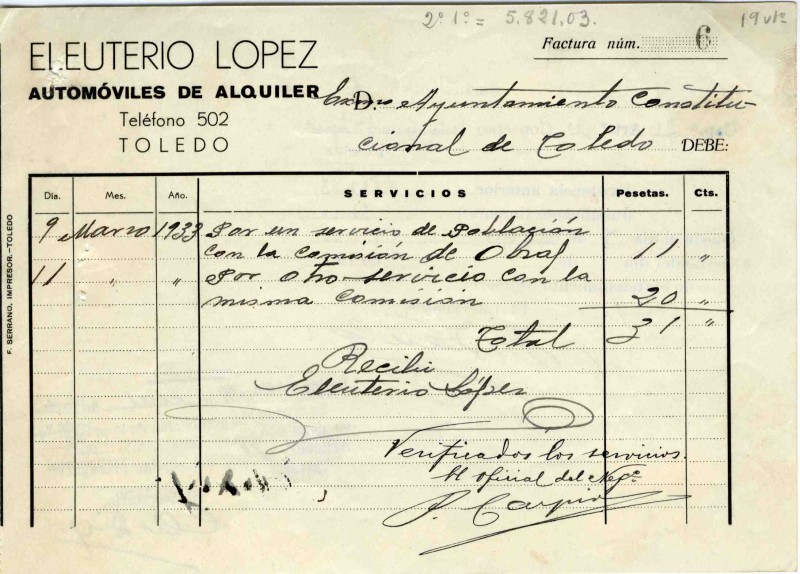 2º 1º = 5.821,03.
ELEUTERIO LOPEZ
AUTOMÓVILES DE ALQUILER
Teléfono 502
TOLEDO
Factura núm. 6
Exmo D. Ayuntamiento Constitu-
cional de Toledo DEBE:
Día. Mes. Año. SERVICIOS Pesetas. Cts.
9 Marzo 1933 Por un servicio de Población
con la comisión de Obras 11 "
11 " " Por otro servicio con la
misma comisión 20 "
Total 31 "
Recibí
Eleuterio López
Verificados los servicios.
El oficial del Negº
P. Carpio
F. SERRANO, IMPRESOR.-TOLEDO